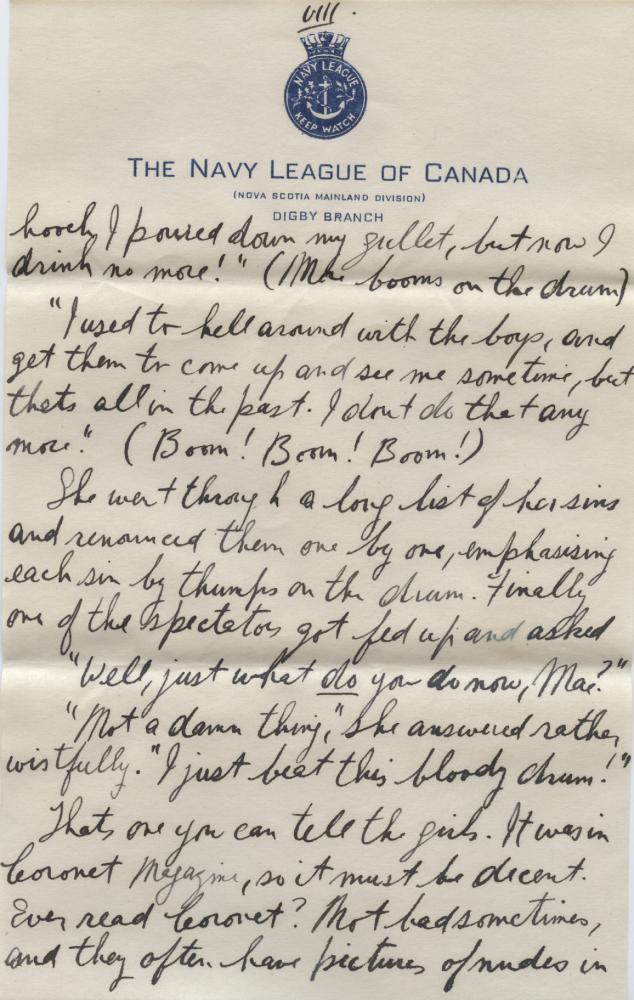 VIII.
NAVY LEAGUE
KEEP WATCH
THE NAVY LEAGUE OF CANADA
(NOVA SCOTIA MAINLAND DIVISION)
DIGBY BRANCH
hooch I poured down my gullet, but now I
drink no more!" (Mae booms on the drum)
"I used to hell around with the boys, and
get them to come up and see me sometime, but
thats all in the past. I dont do that any
more." (Boom! Boom! Boom!)
She went through a long list of her sins
and renounced them one by one, emphasising
each sin by thumps on the drum. Finally
one of the spectators got fed up and asked
"Well, just what do you do now, Mae?"
"Not a damn thing," she answered rather
wistfully. "I just beat this bloody drum!"
Thats one you can tell the girls. It was in
Coronet Magazine, so it must be decent.
Ever read Coronet? Not bad sometimes,
and they often have pictures of nudes in